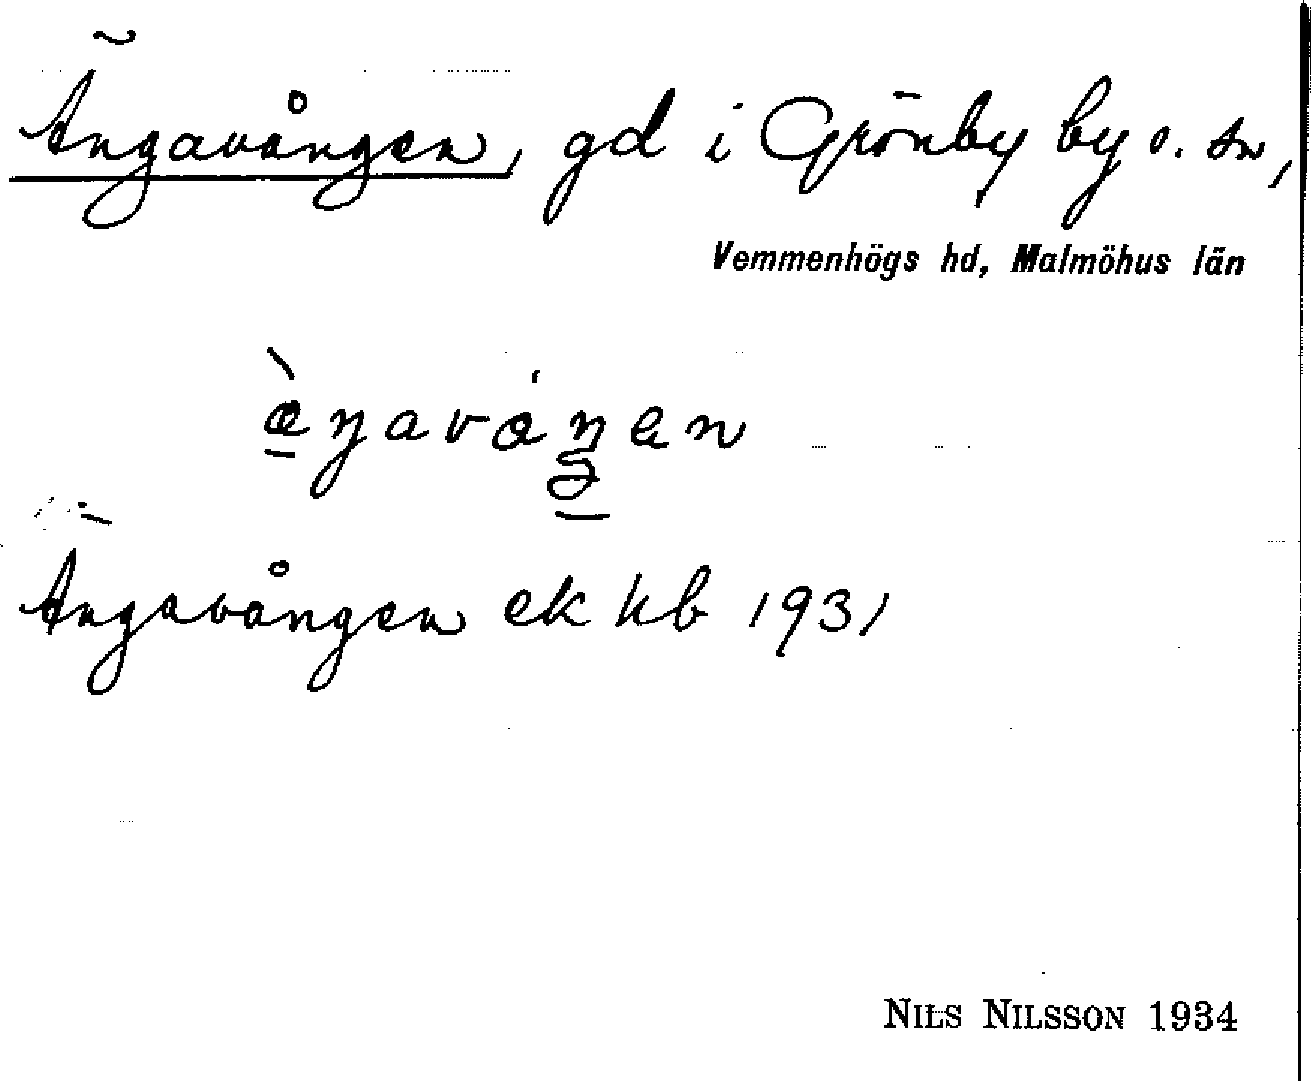 Ängavången, gd i Grönby by o. sn,
Vemmenhögs hd, Malmöhus län
æ̀ŋaváŋen
Ängavången ek kb 1931
NILS NILSSON 1934